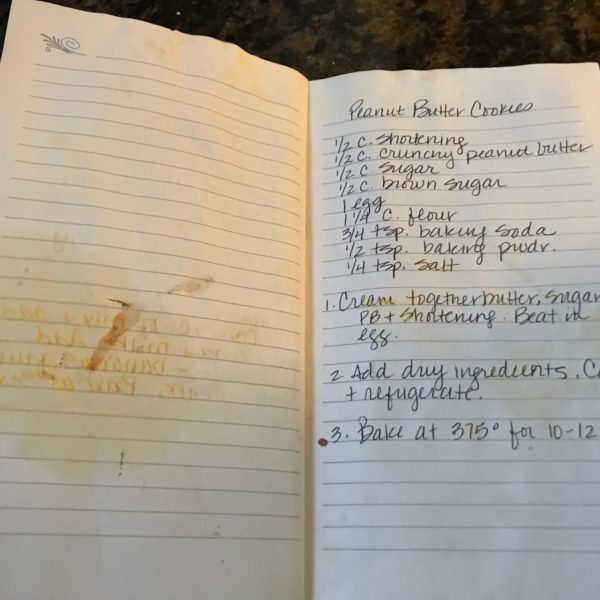 Peanut Butter Cookies
1/2 c. shortening
1/2 c. crunchy peanut butter
1/2 c. sugar
1/2 c. brown sugar
1 egg
1 1/4 c. flour
3/4 tsp. baking soda
1/2 tsp. baking pwdr.
1/4 tsp. salt
1. Cream together butter, sugar
PB + shortening. Beat in
egg.
2. Add dry ingredients.
+ refrigerate.
3. Bake at 375° for 10-12